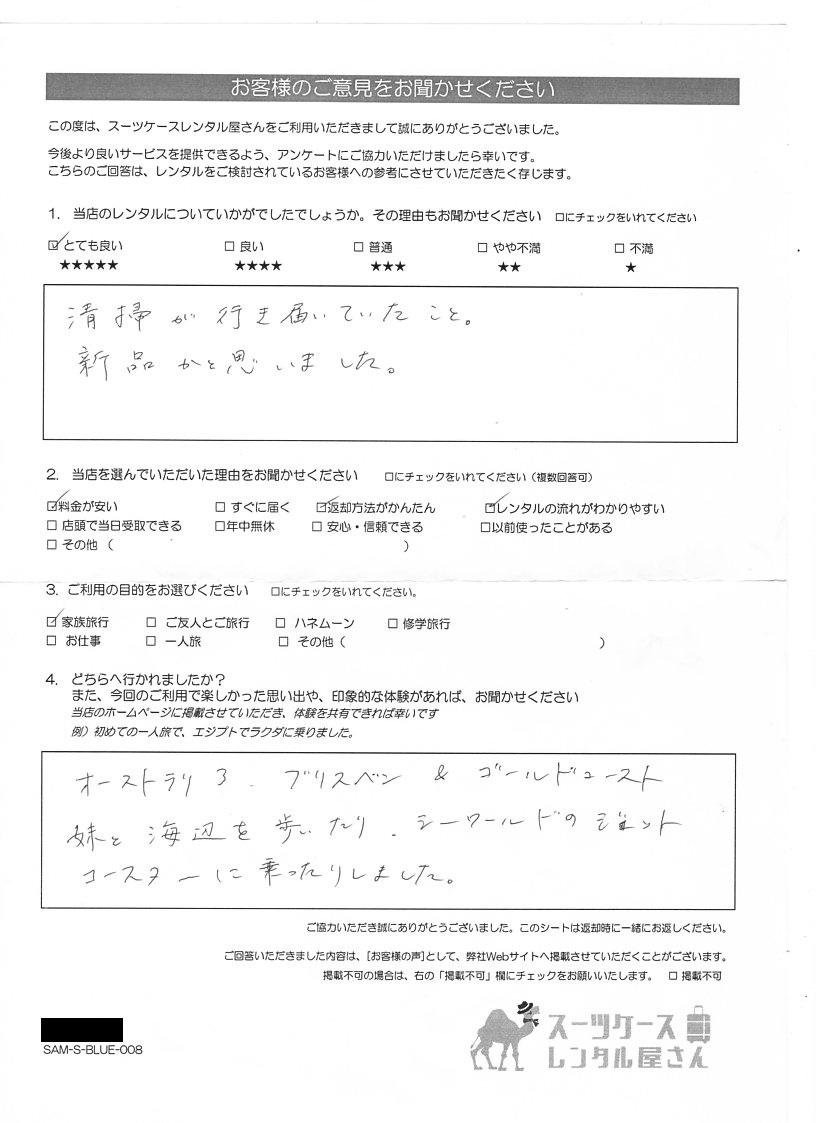 お客様のご意見をお聞かせください
この度は、スーツケースレンタル屋さんをご利用いただきまして誠にありがとうございました。
今後より良いサービスを提供できるよう、アンケートにご協力いただけましたら幸いです。
こちらのご回答は、レンタルをご検討されているお客様への参考にさせていただきたく存じます。
1. 当店のレンタルについていかがでしたでしょうか。その理由もお聞かせください □にチェックをいれてください
☑とても良い □ 良い □ 普通 □ やや不満 □ 不満
★★★★★ ★★★★ ★★★ ★★ ★
清掃が行き届いていたこと。
新品かと思いました。
2. 当店を選んでいただいた理由をお聞かせください □にチェックをいれてください（複数回答可）
☑料金が安い □ すぐに届く ☑返却方法がかんたん ☑レンタルの流れがわかりやすい
□ 店頭で当日受取できる □年中無休 □ 安心・信頼できる □以前使ったことがある
□ その他 （ ）
3. ご利用の目的をお選びください □にチェックをいれてください。
☑家族旅行 □ ご友人とご旅行 □ ハネムーン □ 修学旅行
□ お仕事 □ 一人旅 □ その他（ ）
4. どちらへ行かれましたか？
また、今回のご利用で楽しかった思い出や、印象的な体験があれば、お聞かせください
当店のホームページに掲載させていただき、体験を共有できれば幸いです
例）初めての一人旅で、エジプトでラクダに乗りました。
オーストラリヨ、ブリスベン & ゴールドコースト
妹と海辺を歩いたり、シーワールドのジェット
コースターに乗ったりしました。
ご協力いただき誠にありがとうございました。このシートは返却時に一緒にお返しください。
ご回答いただきました内容は、[お客様の声]として、弊社Webサイトへ掲載させていただくことがございます。
掲載不可の場合は、右の「掲載不可」欄にチェックをお願いいたします。 □ 掲載不可
SAM-S-BLUE-008
スーツケース
レンタル屋さん